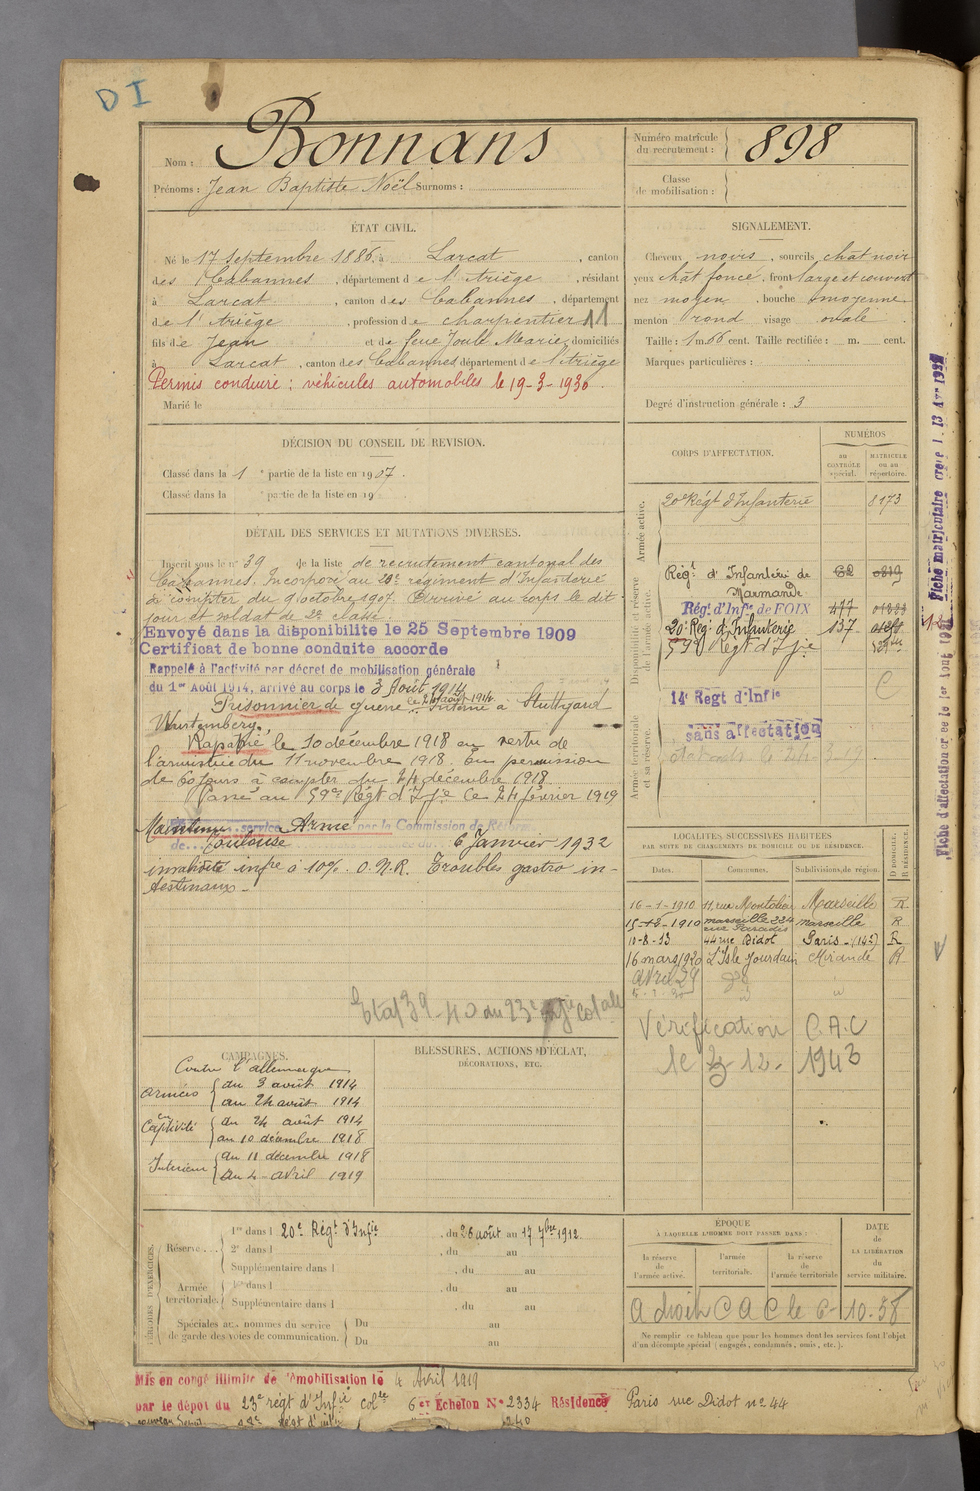 DI
Nom : Bonnans
Prénoms : Jean Baptiste Noël Surnoms :
Numéro matricule du recrutement : 898
Classe de mobilisation :
ÉTAT CIVIL.
Né le 17 Septembre 1886, à Larcat, canton
des Cabannes, département de l'Ariège, résidant
à Larcat, canton des Cabannes, département
de l'Ariège, profession de charpentier 11
fils de Jean et de feue Joulé Marie, domiciliés
à Larcat, canton des Cabannes département de l'Ariège
Permis conduire : véhicules automobiles le 19-3-1936.
Marié le
SIGNALEMENT.
Cheveux noirs, sourcils chat noir
yeux chat foncé, front large et couvert
nez moyen, bouche moyenne
menton rond visage ovale
Taille : 1 m. 66 cent. Taille rectifiée : m. cent.
Marques particulières :
Degré d'instruction générale : 3
DÉCISION DU CONSEIL DE REVISION.
Classé dans la 1e partie de la liste en 1907.
Classé dans la e partie de la liste en 19
DÉTAIL DES SERVICES ET MUTATIONS DIVERSES.
Inscrit sous le n° 39 de la liste de recrutement cantonal des
Cabannes. Incorporé au 20e régiment d'Infanterie
à compter du 9 octobre 1907. Arrivé au corps le dit
jour et soldat de 2e classe.
Envoyé dans la disponibilite le 25 Septembre 1909
Certificat de bonne conduite accorde
Rappelé à l'activité par décret de mobilisation générale
du 1er Août 1914, arrivé au corps le 3 Août 1914
Prisonnier de guerre le 24 août 1914 Interné à Stuttgard
Wurtemberg.
Rapatrié le 10 décembre 1918 en vertu de
l'armistice du 11 novembre 1918. En permission
de 60 jours à compter du 24 décembre 1918.
Passé au 59e Régt d'Inf ie le 24 février 1919
Maintenu service Armé par la Commission de Réforme
de Toulouse du 6 Janvier 1932
invalidité infre à 10% O.N.R. Troubles gastro in-
testinaux.
39-40 du 23e
CORPS D'AFFECTATION.
NUMÉROS
au CONTRÔLE spécial.
MATRICULE ou au répertoire.
Armée active.
20e Régt d'Infanterie 8173
Disponibilité et réserve de l'armée active.
Régt d'Infanterie de Marmande
Régt d'Infie de FOIX
20e Régt d'Infanterie 137
59e Régt d'Ifie
C
Armée territoriale et sa réserve.
14e Regt d'Infie
sans affectation
LOCALITÉS SUCCESSIVES HABITÉES
PAR SUITE DE CHANGEMENTS DE DOMICILE OU DE RÉSIDENCE.
Dates. Communes. Subdivisions de région. D DOMICILE. R RÉSIDENCE.
16-1-1910 11, rue Montolieu Marseille R
15-12-1910 marseille 234 rue Paradis marseille R
10-8-13 44 rue Didot Paris (14e) R
16 mars 1920 L'Isle Jourdain Mirande R
avril 29
Vérification C.A.C
le 3-12-1943
CAMPAGNES.
Contre l'allemagne
Armées du 3 août 1914
au 24 août 1914
en Captivité du 24 août 1914
au 10 décembre 1918
Intérieur du 11 décembre 1918
au 4 avril 1919
BLESSURES, ACTIONS D'ÉCLAT,
DÉCORATIONS, ETC.
PÉRIODES D'EXERCICES.
Réserve 1re dans l 20e Régt d'Infie, du 26 août au 17 7bre 1912
2e dans l, du au
Supplémentaire dans l, du au
Armée territoriale. 1re dans l, du au
Supplémentaire dans l, du au
Spéciales aux hommes du service de garde des voies de communication. Du au
Du au
ÉPOQUE
À LAQUELLE L'HOMME DOIT PASSER DANS :
la réserve de l'armée active.
l'armée territoriale.
la réserve de l'armée territoriale
DATE de LA LIBÉRATION du service militaire.
A droit C A C le 6-10-58
Ne remplir ce tableau que pour les hommes dont les services font l'objet
d'un décompte spécial (engagés, condamnés, omis, etc.).
Mis en congé illimité de démobilisation le 4 Avril 1919
par le dépot du 23e régt d'Infie colle 6e Echelon N° 2334 Résidence Paris rue Didot n° 44